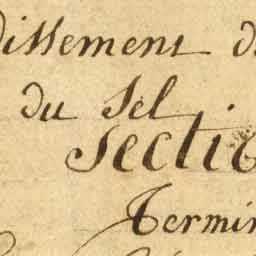 dissement d
du Sel
Sectio
Termin